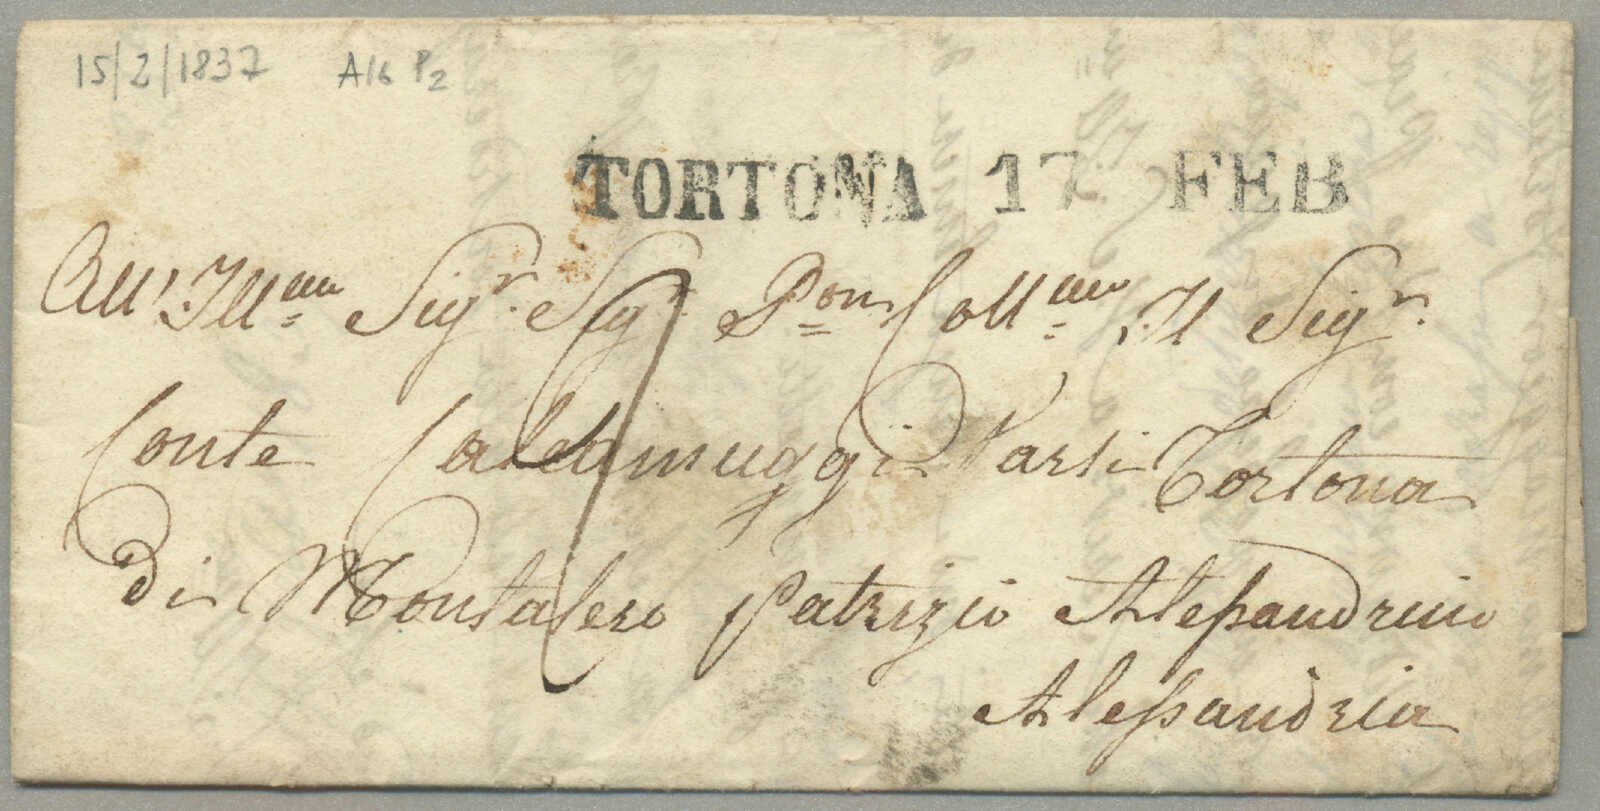 15/2/1837 A16 P2
TORTONA 17 FEB
All' Illmo Sigr. Sigr. Pron Collmo Il Sigr.
Conte Calcamuggi Varsi Tortona
di Montalero Patrizio Alessandrino
Alessandria